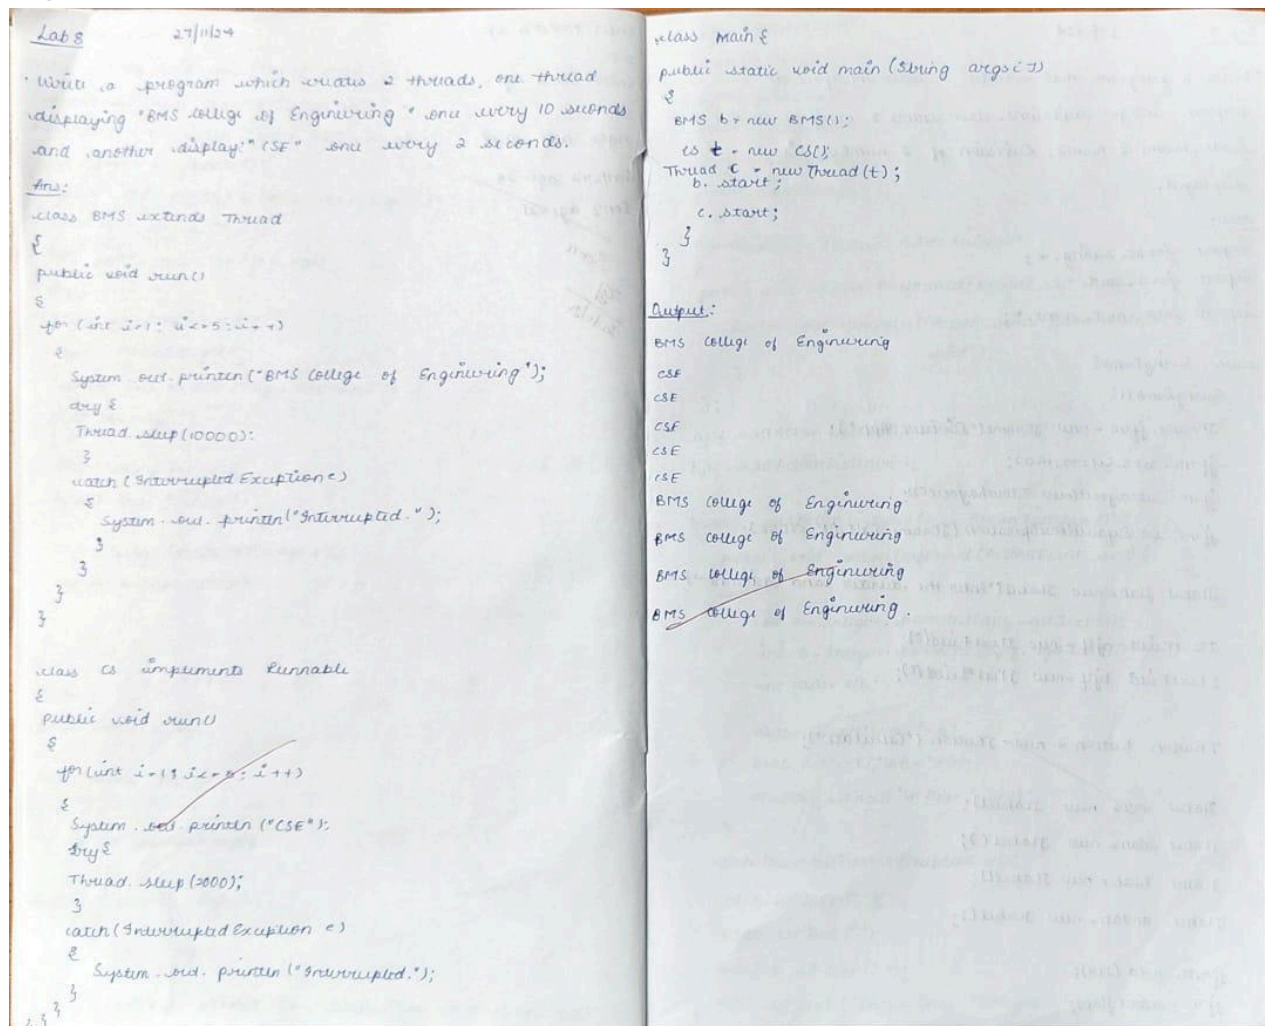 Lab 8 27/11/24
Write a program which creates 2 threads, one thread
displaying "BMS College of Engineering" once every 10 seconds
and another display: "CSE" once every 2 seconds.
Ans:
class BMS extends Thread
{
public void run()
{
for (int i=1; i<=5; i++)
{
System.out.println("BMS College of Engineering");
try {
Thread.sleep(10000);
}
catch (Interrupted Exception e)
{
System.out.println("Interrupted.");
}
}
}
}
class CS implements Runnable
{
public void run()
{
for (int i=1; i<=5; i++)
{
System.out.println("CSE");
try {
Thread.sleep(2000);
}
catch (Interrupted Exception e)
{
System.out.println("Interrupted.");
}
}
} }
class Main {
public static void main (String args[])
{
BMS b = new BMS();
CS t = new CS();
Thread c = new Thread(t);
b. start;
c. start;
}
}
Output:
BMS College of Engineering
CSE
CSE
CSE
CSE
CSE
BMS College of Engineering
BMS College of Engineering
BMS College of Engineering
BMS College of Engineering.